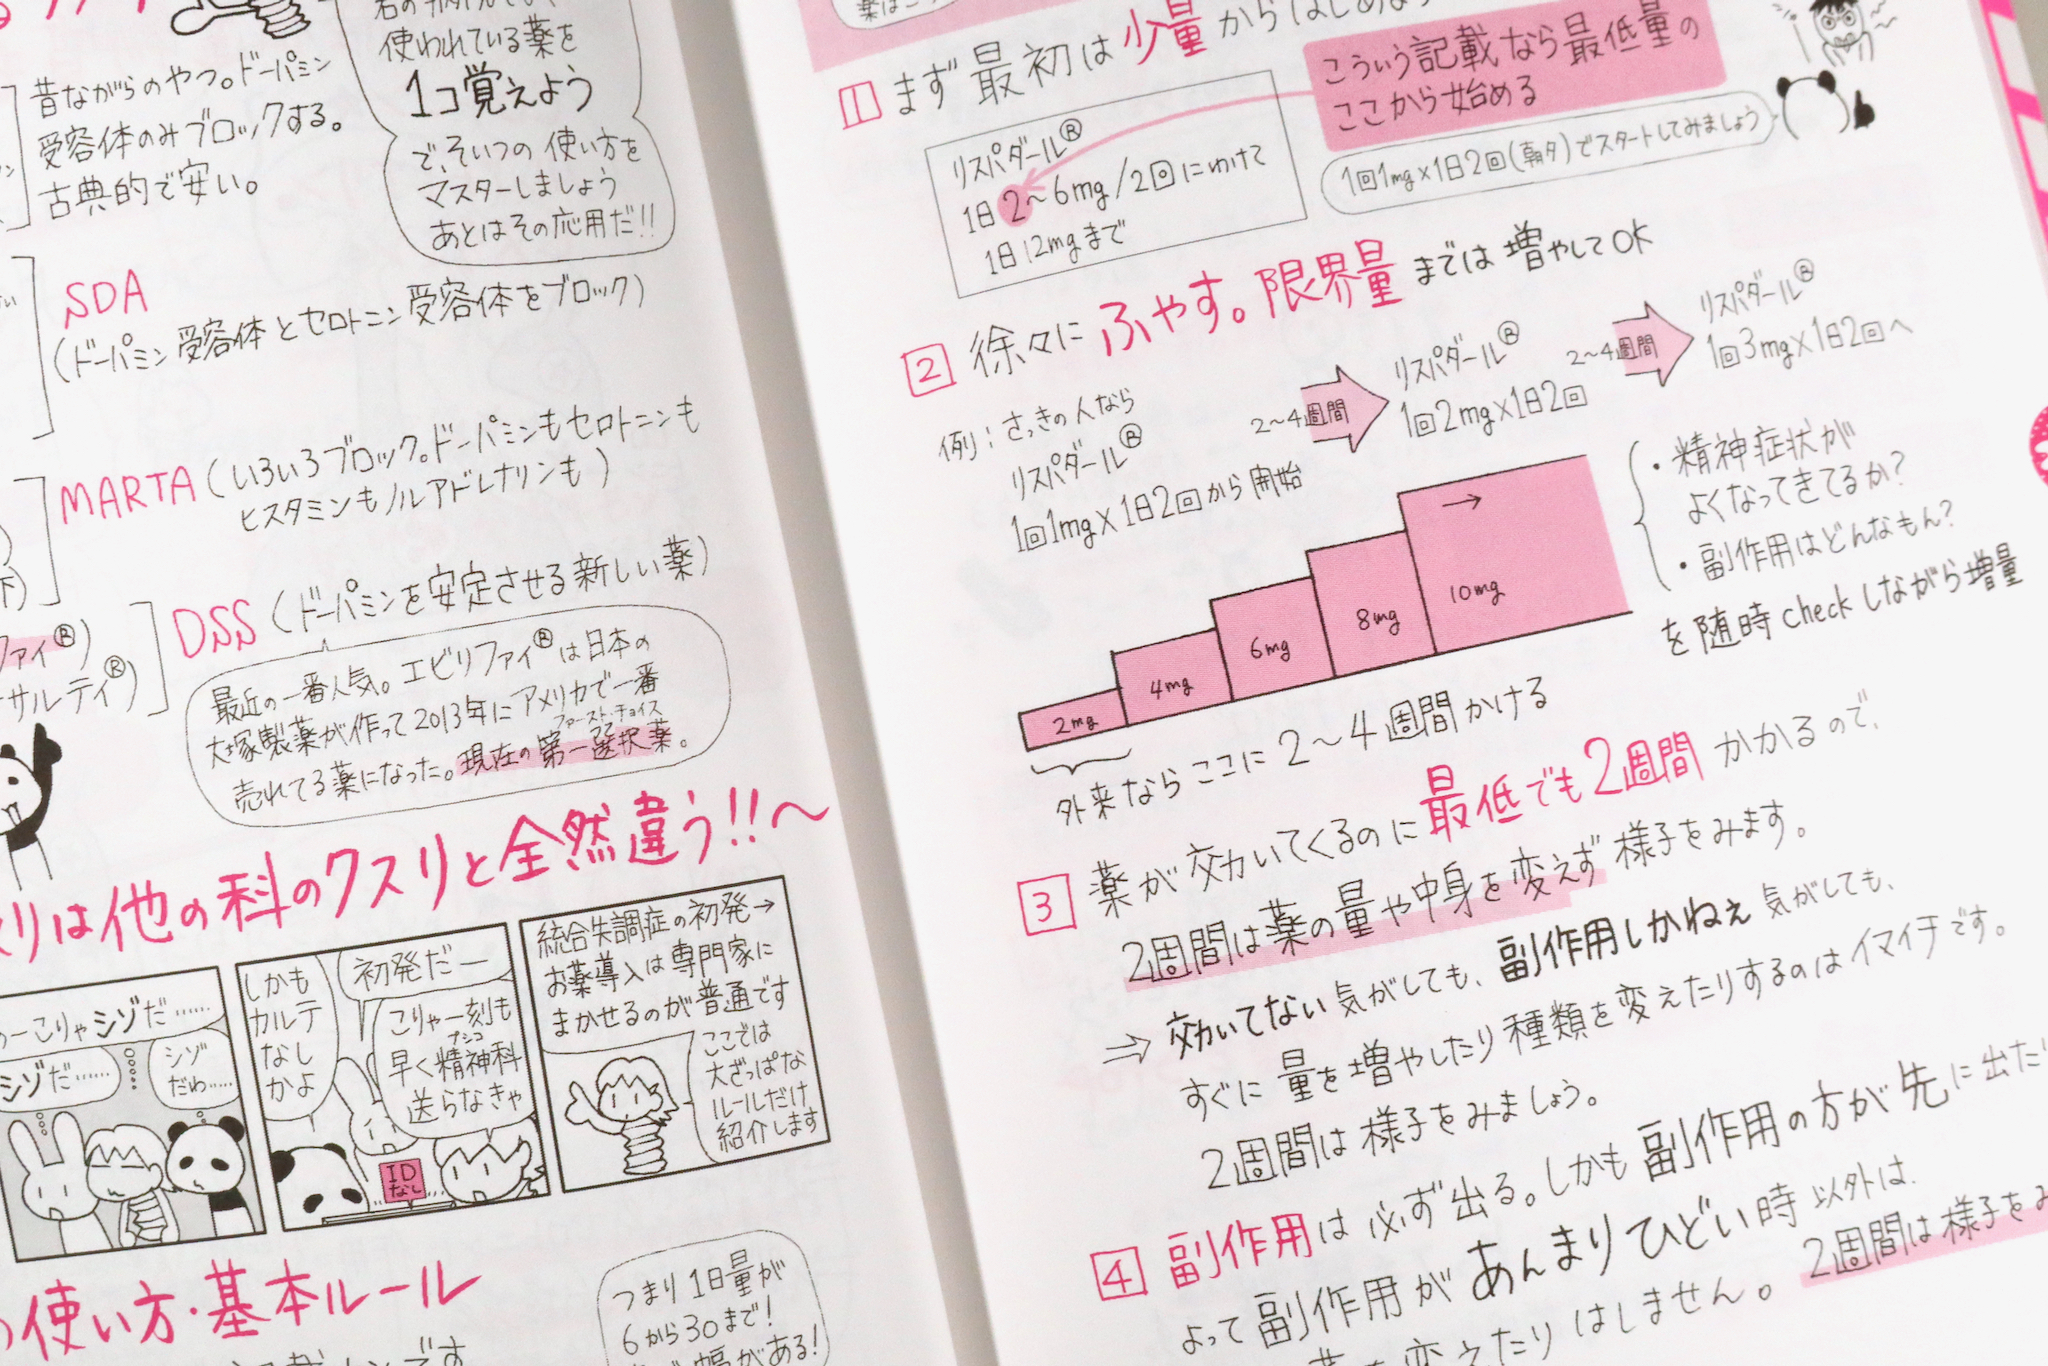 使われている薬を
1コ覚えよう
で、そいつの使い方を
マスターしましょう
あとはその応用だ!!
昔ながらのやつ。ドーパミン
受容体のみブロックする。
古典的で安い。
SDA
(ドーパミン受容体とセロトニン受容体をブロック)
MARTA(いろいろブロック。ドーパミンもセロトニンも
ヒスタミンもノルアドレナリンも)
DSS(ドーパミンを安定させる新しい薬)
ファイ®)
サルティ®)
最近の一番人気。エビリファイ®は日本の
大塚製薬が作って2013年にアメリカで一番
売れてる薬になった。現在の第一選択薬。
ファースト・チョイス
リは他の科のクスリと全然違う!!〜
こりゃシゾだ……
シゾだ……
シゾ
だわ……
しかも
カルテ
なし
かよ
初発だー
こりゃ一刻も
早く精神科
プシコ
送らなきゃ
ID
なし
統合失調症の初発→
お薬導入は専門家に
まかせるのが普通です
ここでは
大ざっぱな
ルールだけ
紹介します
使い方・基本ルール
つまり1日量が
6から30まで!
幅がある!
1 まず最初は少量からはじめ
こういう記載なら最低量の
ここから始める
1回1mg×1日2回(朝夕)でスタートしてみましょう
リスパダール®
1日2〜6mg/2回にわけて
1日12mgまで
2 徐々にふやす。限界量までは増やしてOK
例：さっきの人なら
リスパダール®
1回1mg×1日2回から開始
2〜4週間
リスパダール®
1回2mg×1日2回
2〜4週間
リスパダール®
1回3mg×1日2回へ
2mg
4mg
6mg
8mg
→
10mg
・精神症状が
よくなってきてるか?
・副作用はどんなもん?
を随時checkしながら増量
外来ならここに2〜4週間かける
3 薬が効いてくるのに最低でも2週間かかるので、
2週間は薬の量や中身を変えず様子をみます。
⇒ 効いてない気がしても、副作用しかねぇ気がしても、
すぐに量を増やしたり種類を変えたりするのはイマイチです。
2週間は様子をみましょう。
4 副作用は必ず出る。しかも副作用の方が先に出た
よって副作用があんまりひどい時以外は、
変えたりはしません。2週間は様子を